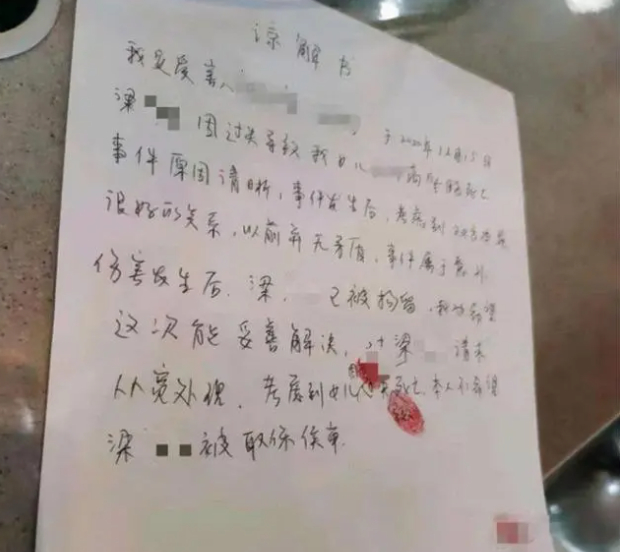 谅解书
我是受害人
梁 因过失导致我女儿 高坠死亡 于2020年12月15日
事件原因清晰，事件发生后，考虑到
很好的关系，以前并无矛盾，事件属于意外
伤害发生后，梁 已被拘留，我方希望
这次能妥善解决，对梁 请求
从宽处理，考虑到女儿 死亡本人不希望
梁 被取保候审